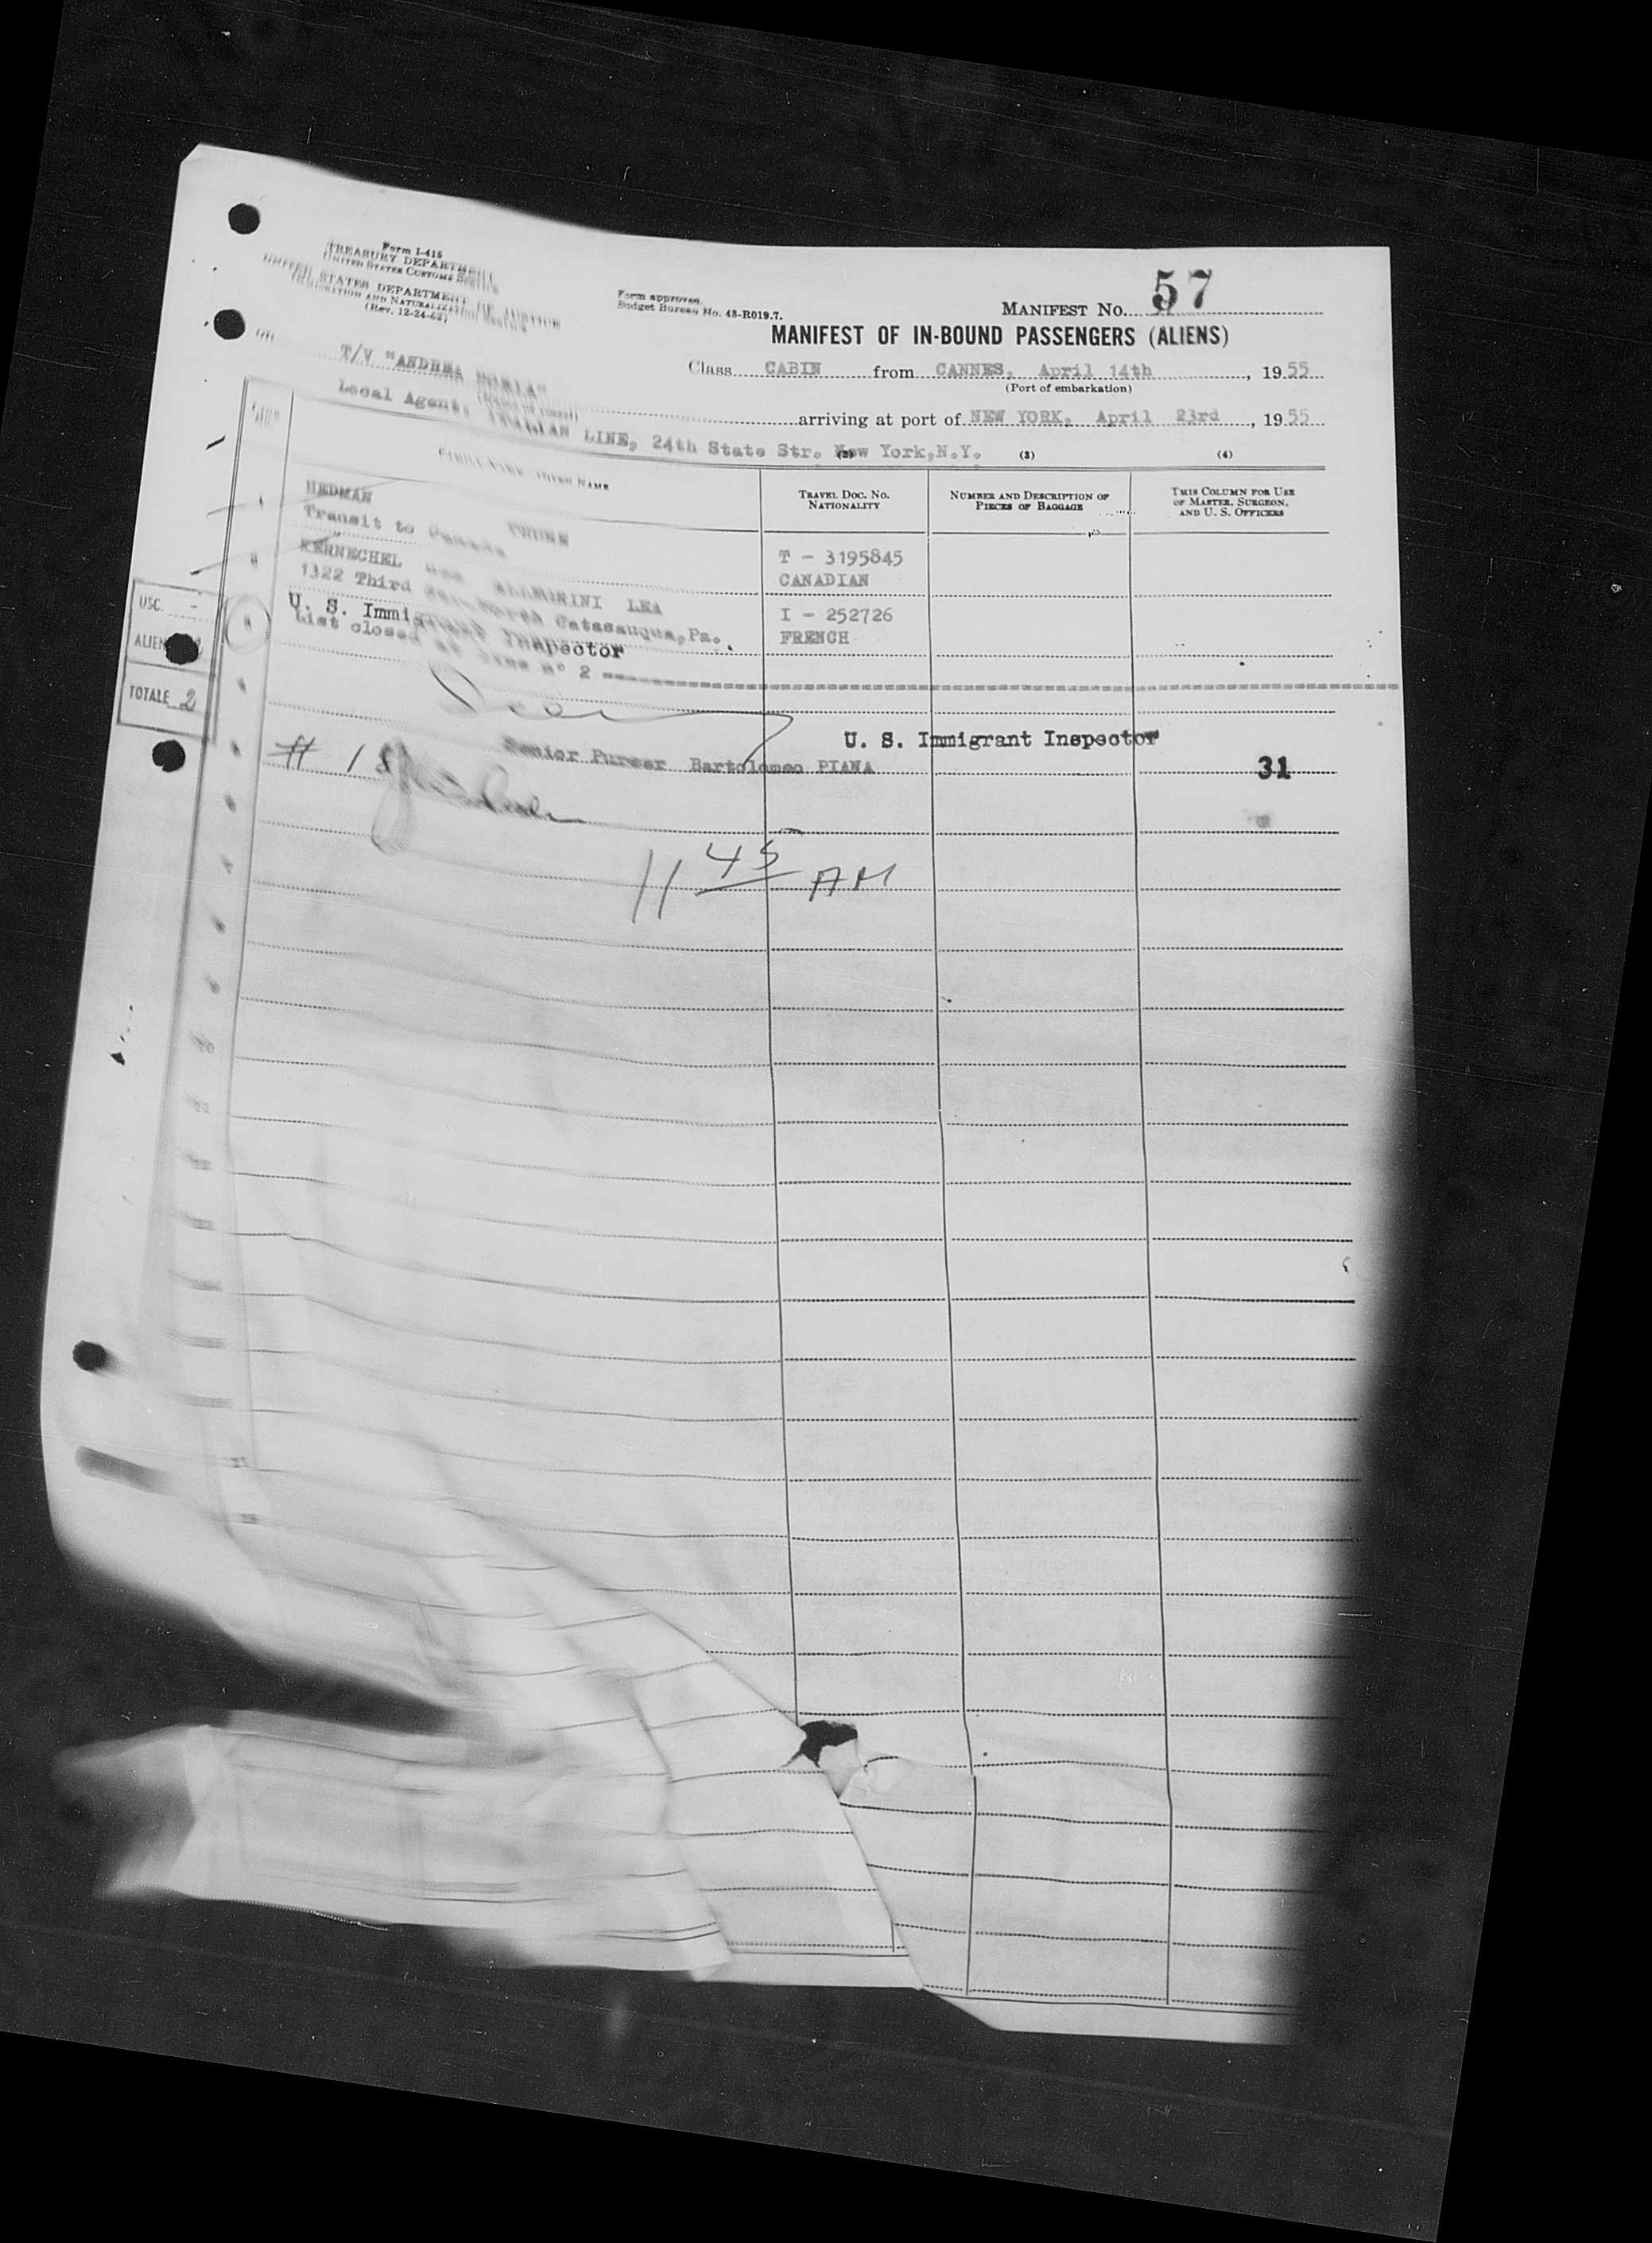 Form I-415
TREASURY DEPARTMENT
UNITED STATES CUSTOMS SERVICE
UNITED STATES DEPARTMENT OF JUSTICE
IMMIGRATION AND NATURALIZATION SERVICE
(Rev. 12-24-52)
Form approved.
Budget Bureau No. 43-R019.7.
MANIFEST No. 57
MANIFEST OF IN-BOUND PASSENGERS (ALIENS)
Class CABIN from CANNES, April 14th, 1955
(Port of embarkation)
on T/V "ANDREA DORIA" arriving at port of NEW YORK, April 23rd, 1955
(Name of vessel)
Local Agent, ITALIAN LINE, 24th State Str. New York, N.Y.
(2) (3) (4)
LINE FAMILY NAME GIVEN NAME TRAVEL DOC. NO. NATIONALITY NUMBER AND DESCRIPTION OF PIECES OF BAGGAGE THIS COLUMN FOR USE OF MASTER, SURGEON, AND U. S. OFFICERS
HEDMAN T - 3195845
Transit to Canada CANADIAN
KERNECHEL LEA I - 252726
1322 Third North Catasauqua, Pa. FRENCH
U. S. Immigrant Inspector
List closed at line n° 2
USC. -
ALIEN
TOTALE 2
U. S. Immigrant Inspector
Senior Purser Bartolomeo PIANA
31
# 18
11 45 AM
10
11
12
13
14
17
18